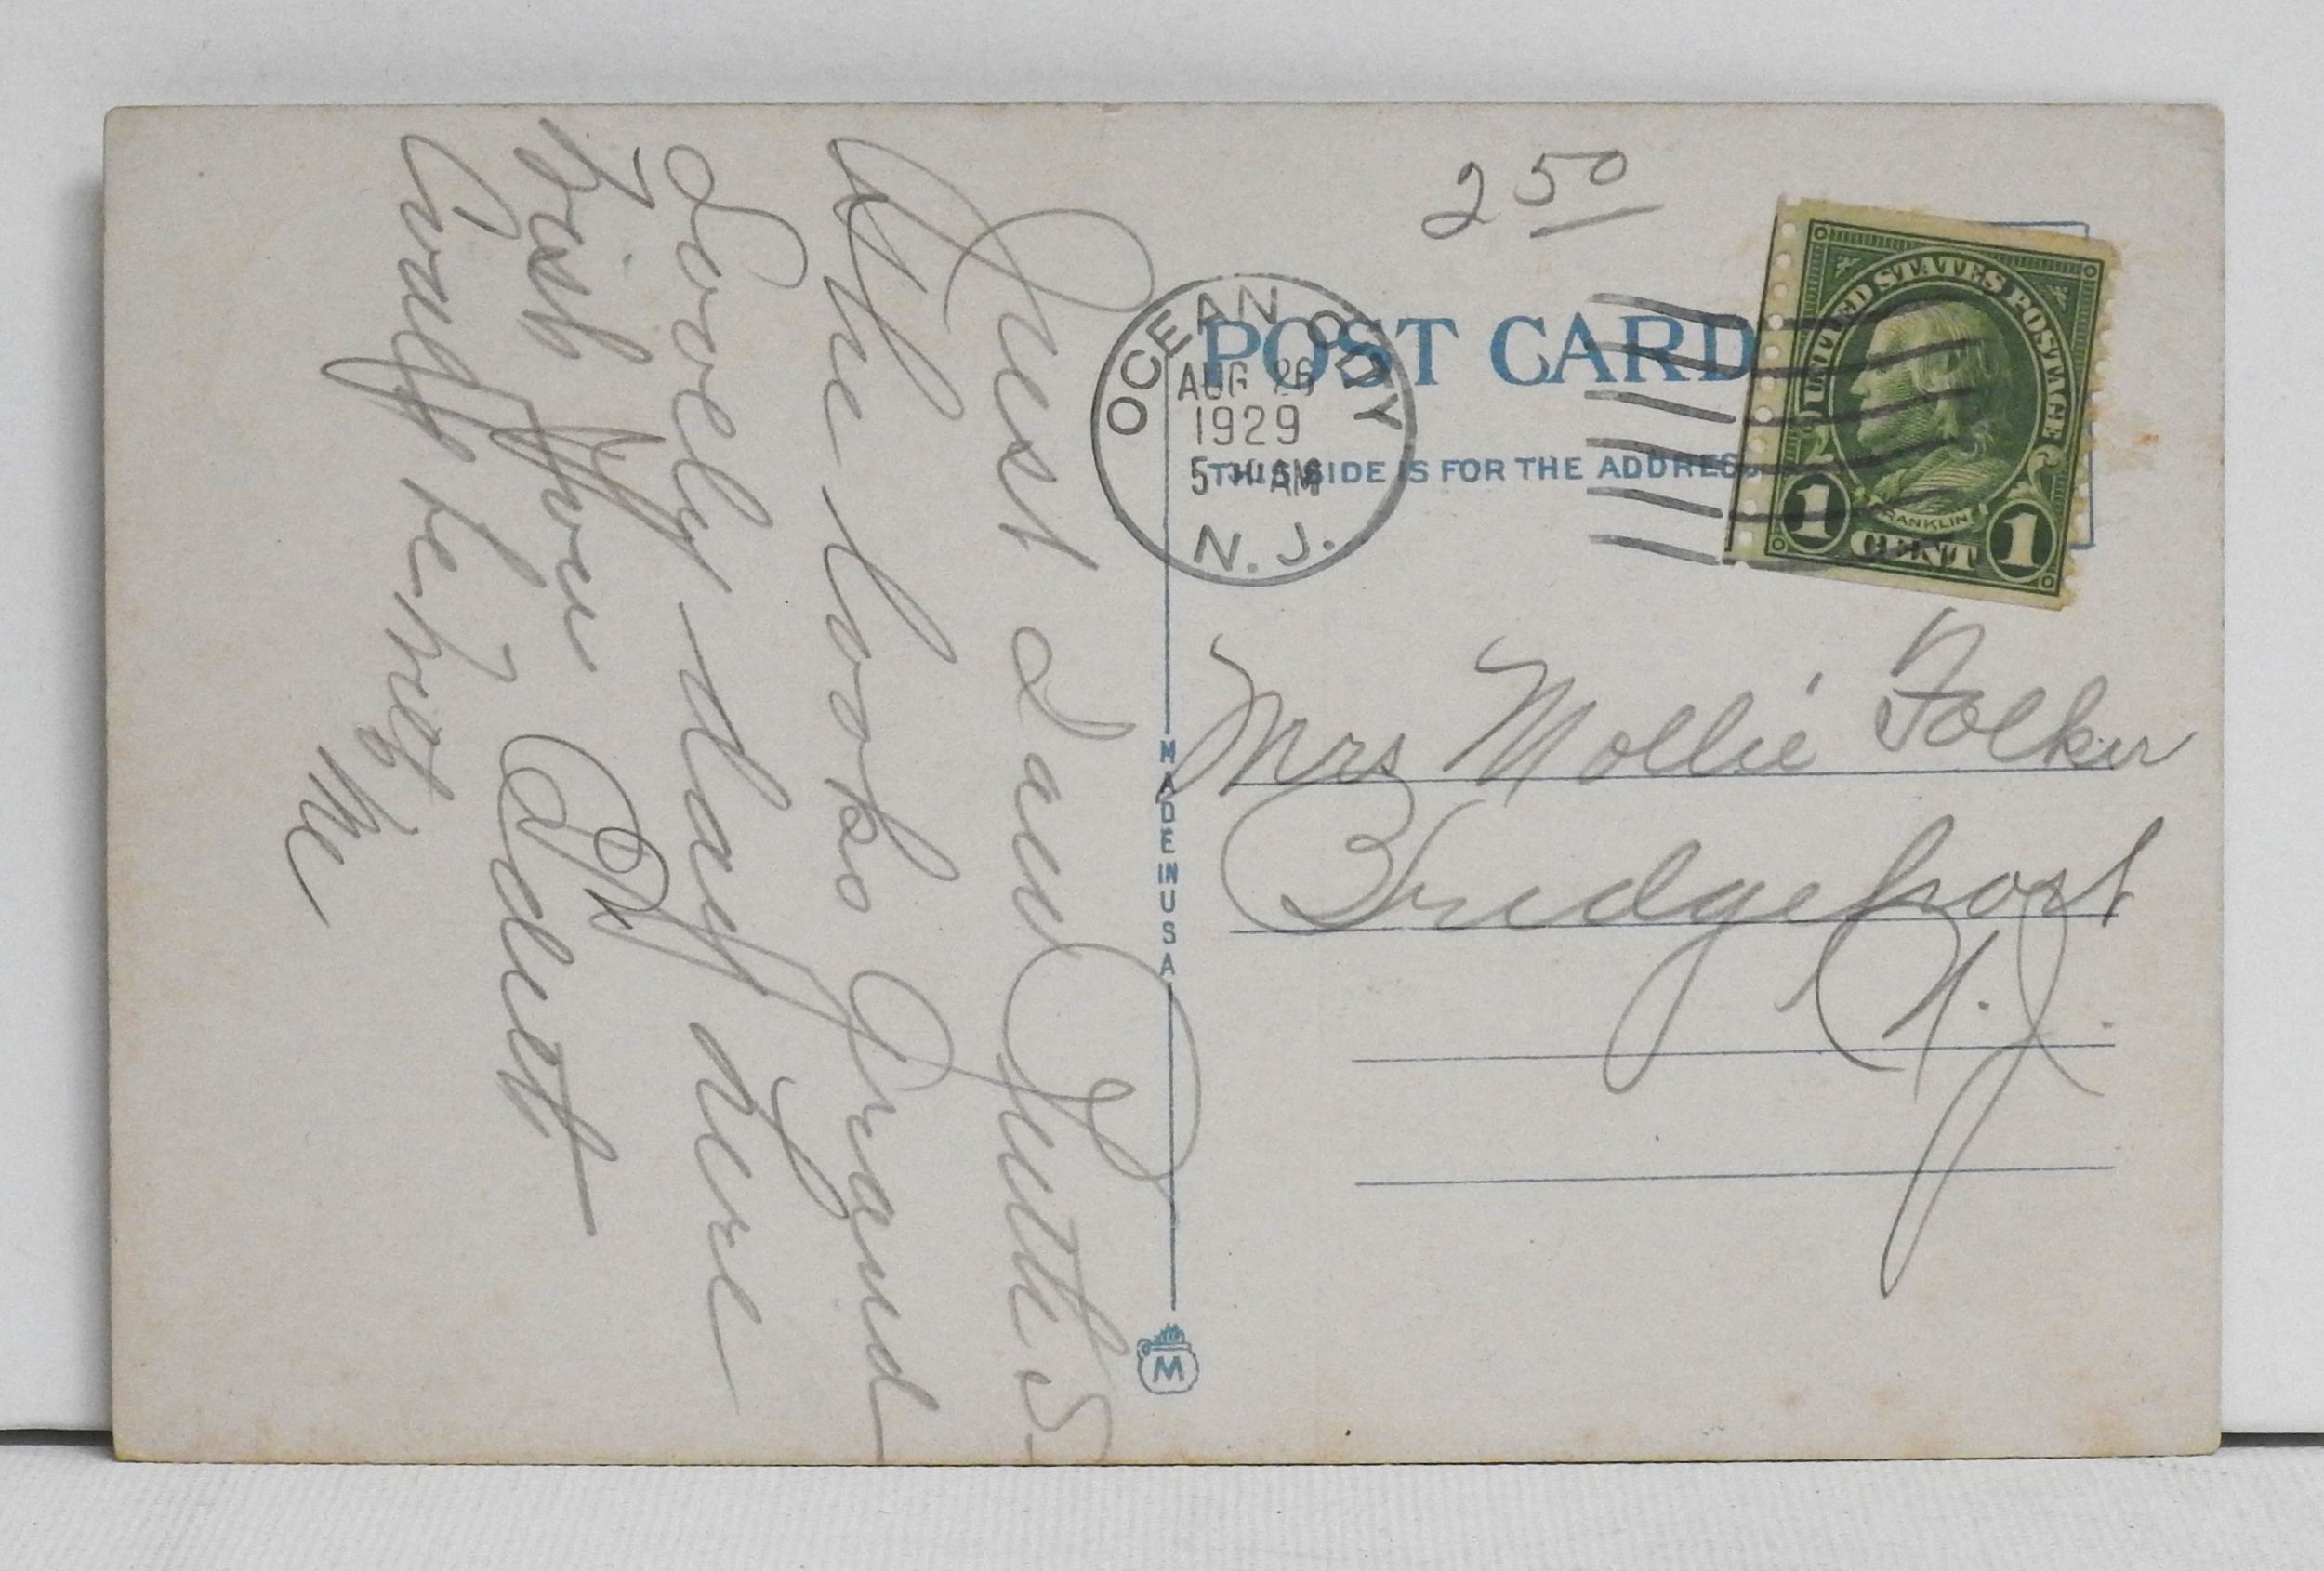 Just saw Ruth S
She looks Grand
Lovely day here
Wish you
Away
Me
2 50
OCEAN CITY
AUG 26
1929
5 AM
N. J.
POST CARD
THIS SIDE IS FOR THE ADDRESS
UNITED STATES POSTAGE
FRANKLIN
1 CENT 1
Mrs Mollie Folker
Bridgeport
N. J.
MADE IN USA
M